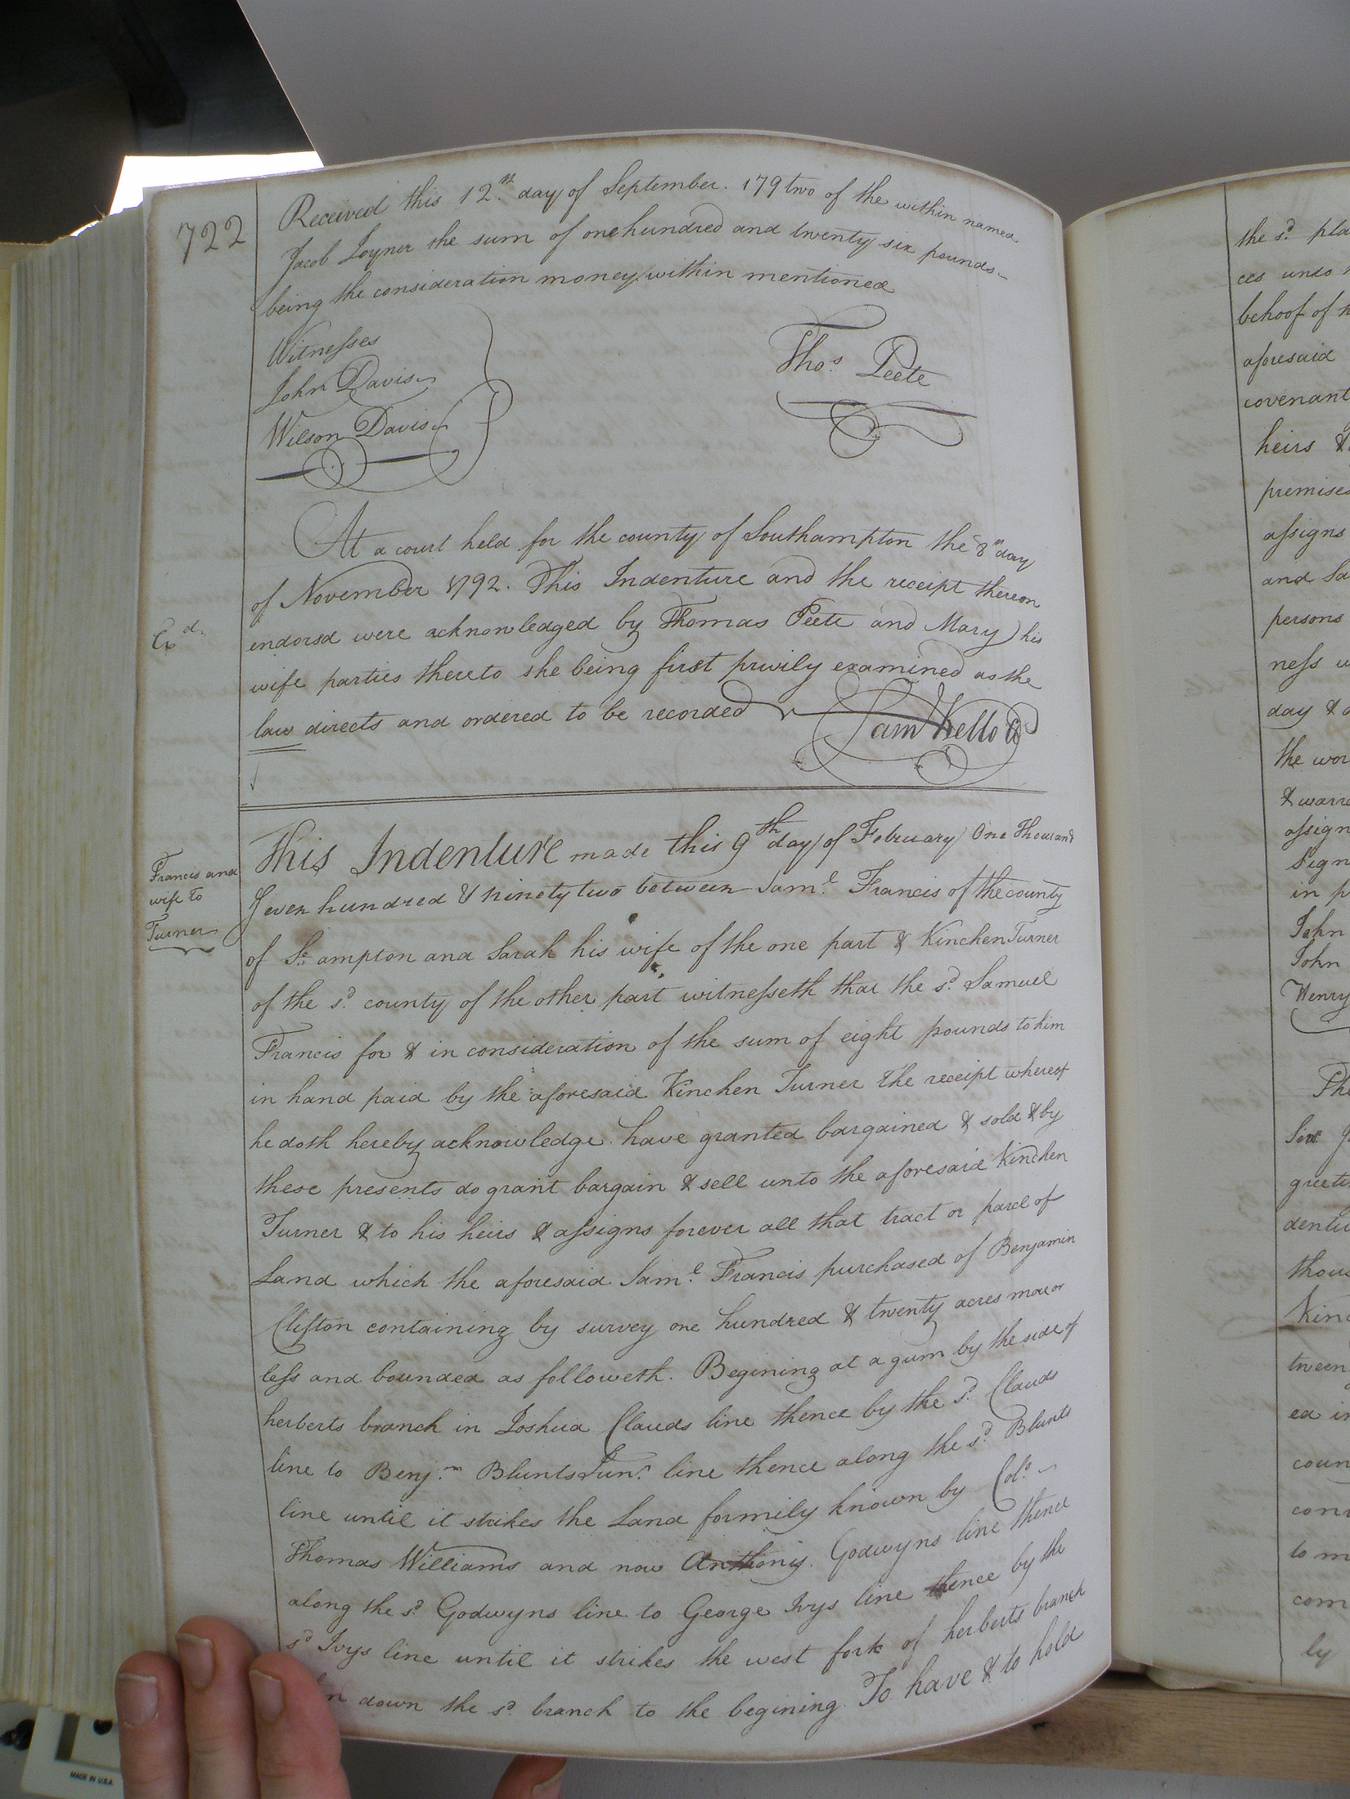 722
Received this 12th day of September. 179two of the within named
Jacob Joyner the sum of onehundred and twenty six pounds
being the consideration money within mentioned
Witnesses
John Davis
Wilson Davis
Thos. Peete
At a court held for the county of Southampton the 8th day
of November 1792. This Indenture and the receipt thereon
endorsd were acknowledged by Thomas Peete and Mary his
wife parties thereto she being first privily examined as the
law directs and ordered to be recorded
Exd.
Francis and
wife to
Turner
This Indenture made this 9th day of February One Thousand
Seven hundred & ninety two between Saml. Francis of the county
of So. ampton and Sarah his wife of the one part & Kinchen Turner
of the sd. county of the other part witnesseth that the sd. Samuel
Francis for & in consideration of the sum of eight pounds to him
in hand paid by the aforesaid Kinchen Turner the receipt whereof
he doth hereby acknowledge have granted bargained & sold & by
these presents do grant bargain & sell unto the aforesaid Kinchen
Turner & to his heirs & assigns forever all that tract or parcel of
Land which the aforesaid Saml. Francis purchased of Benjamin
Clifton containing by survey one hundred & twenty acres more or
less and bounded as followeth. Begining at a gum by the side of
herberts branch in Joshua Clauds line thence by the sd. Clauds
line to Benjn. Blunts Junr. line thence along the sd. Blunts
line until it strikes the Land formily known by Colo.
Thomas Williams and now Anthony. Godwyns line thence
along the sd. Godwyns line to George Ivys line thence by the
sd. Ivys line until it strikes the west fork of herberts branch
down the sd. branch to the begining To have & to hold
the sd. pla
ces unto
behoof of
aforesaid
covenant
heirs &
premises
assigns
and
persons
ness
day &
the wor
& warra
assign
Sign
in p
John
John
Henry
The

greeti
dentu
thou
Kinc
tween
ed in
coun
con
to m
com
ly
MADE IN U.S.A